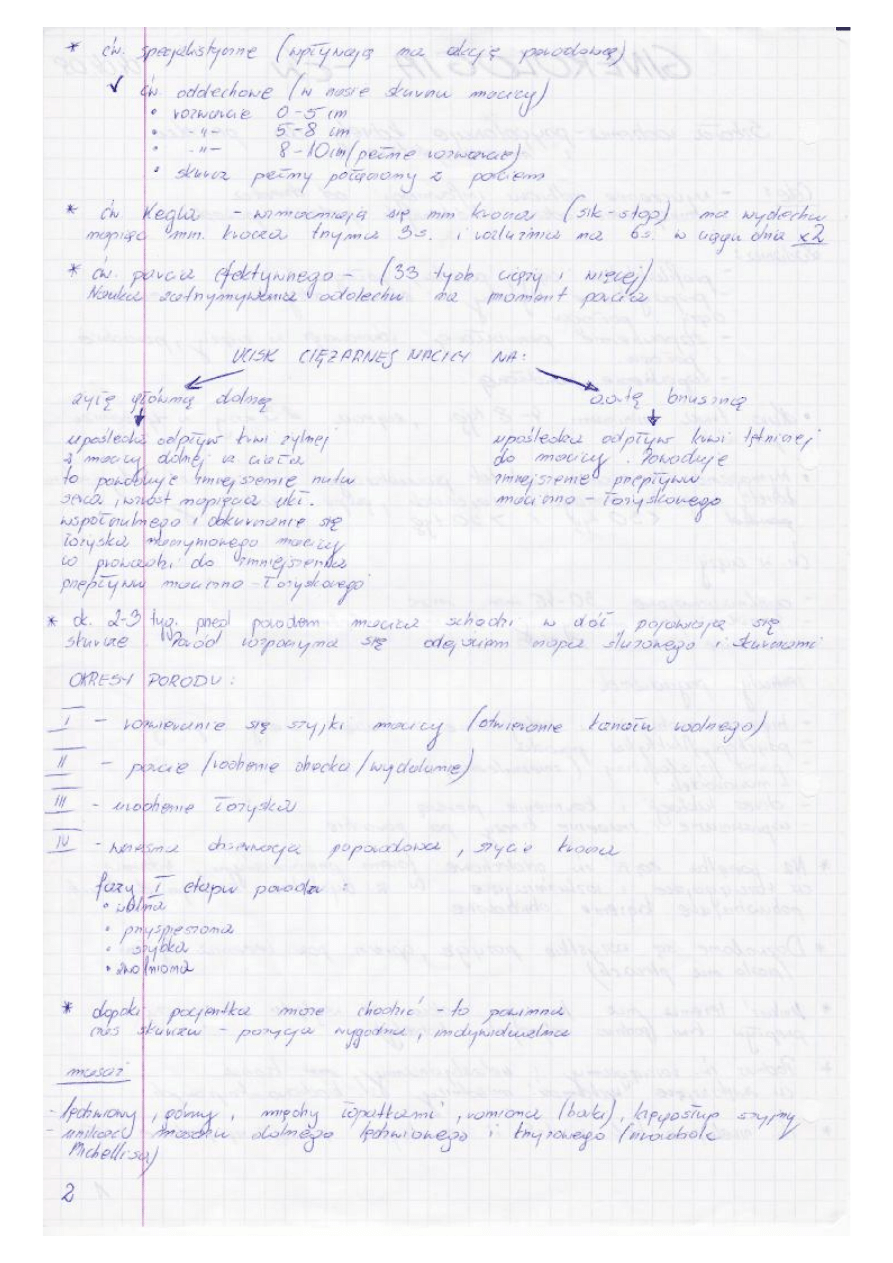 * ćw. specjalistyczne (wpływają na akcję porodową)
✓ ćw. oddechowe (w czasie skurczu macicy)
• rozwarcie 0-5 cm
• -"- 5-8 cm
• -"- 8-10cm (pełne rozwarcie)
• skurcz pełny połączony z parciem
* ćw Kegla - wzmacniają się mm krocza (sik-stop) na wydechu
napięcie mm. krocza trzyma 3s. i rozluźnia na 6s. w ciągu dnia x2
* ćw. parcia efektywnego - (33 tydz ciąży i więcej)
Nauka zatrzymywania oddechu na moment parcia
UCISK CIĘŻARNEJ MACICY NA:
żyłę główną dolną
aortę brzuszną
upośledza odpływ krwi żylnej
z macicy dolnej cz ciała
to powoduje zmniejszenie rzutu
serca, wzrost napięcia ukł.
współczulnego i obkurczanie się
łożyska naczyniowego macicy
co prowadzi do zmniejszenia
przepływu maciczno-łożyskowego
upośledza odpływ krwi tętniczej
do macicy. Powoduje
zmniejszenie przepływu
maciczno-łożyskowego
* ok. 2-3 tyg. przed porodem macica schodzi w dół pojawiają się
skurcze. Poród rozpoczyna się odejściem czopa śluzowego i skurczami
OKRESY PORODU:
I - rozwieranie się szyjki macicy (otwieranie kanału rodnego)
II - parcie /rodzenie dziecka/wydalanie)
III - urodzenie łożyska
IV - wczesna obserwacja poporodowa, szycie krocza
fazy I etapu porodu:
• wolna
• przyspieszona
• szybka
• zwolniona
* dopóki pacjentka może chodzić - to powinna
czas skurczów - pozycja wygodna, indywidualna
masaż
- lędźwiowy, górny, między łopatkami, ramiona (barki), kręgosłup szyjny
- unikać masażu dolnego lędźwiowego i krzyżowego (
Michellisa)
2